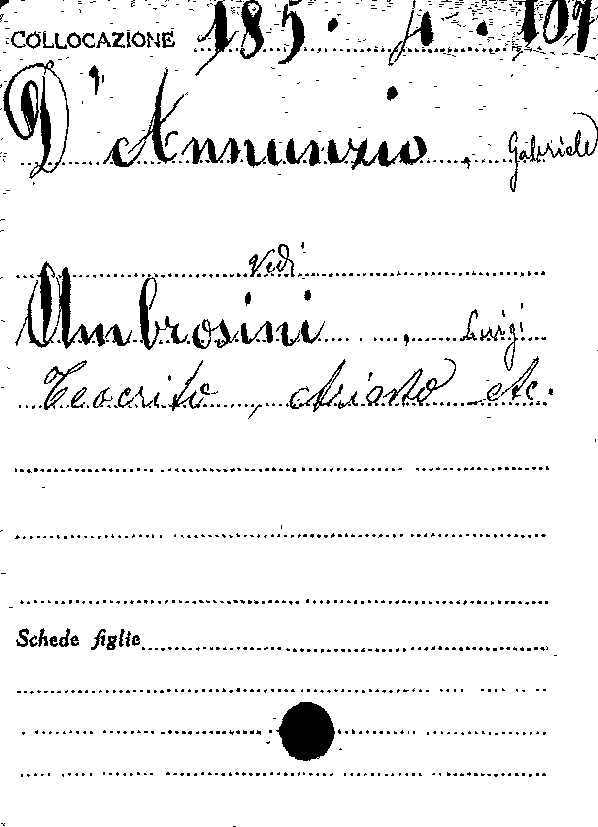 COLLOCAZIONE 185. 4. 109
D'Annunzio, Gabriele
Vedi
Ambrosini, Luigi
Teocrito, Ariosto etc.
Schede figlie